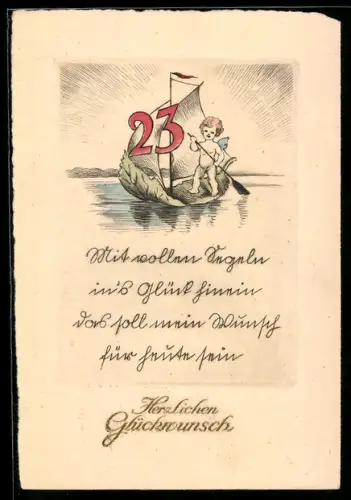 23
Mit vollen Segeln
in's Glück hinein
das soll mein Wunsch
für heute sein
Herzlichen
Glückwunsch